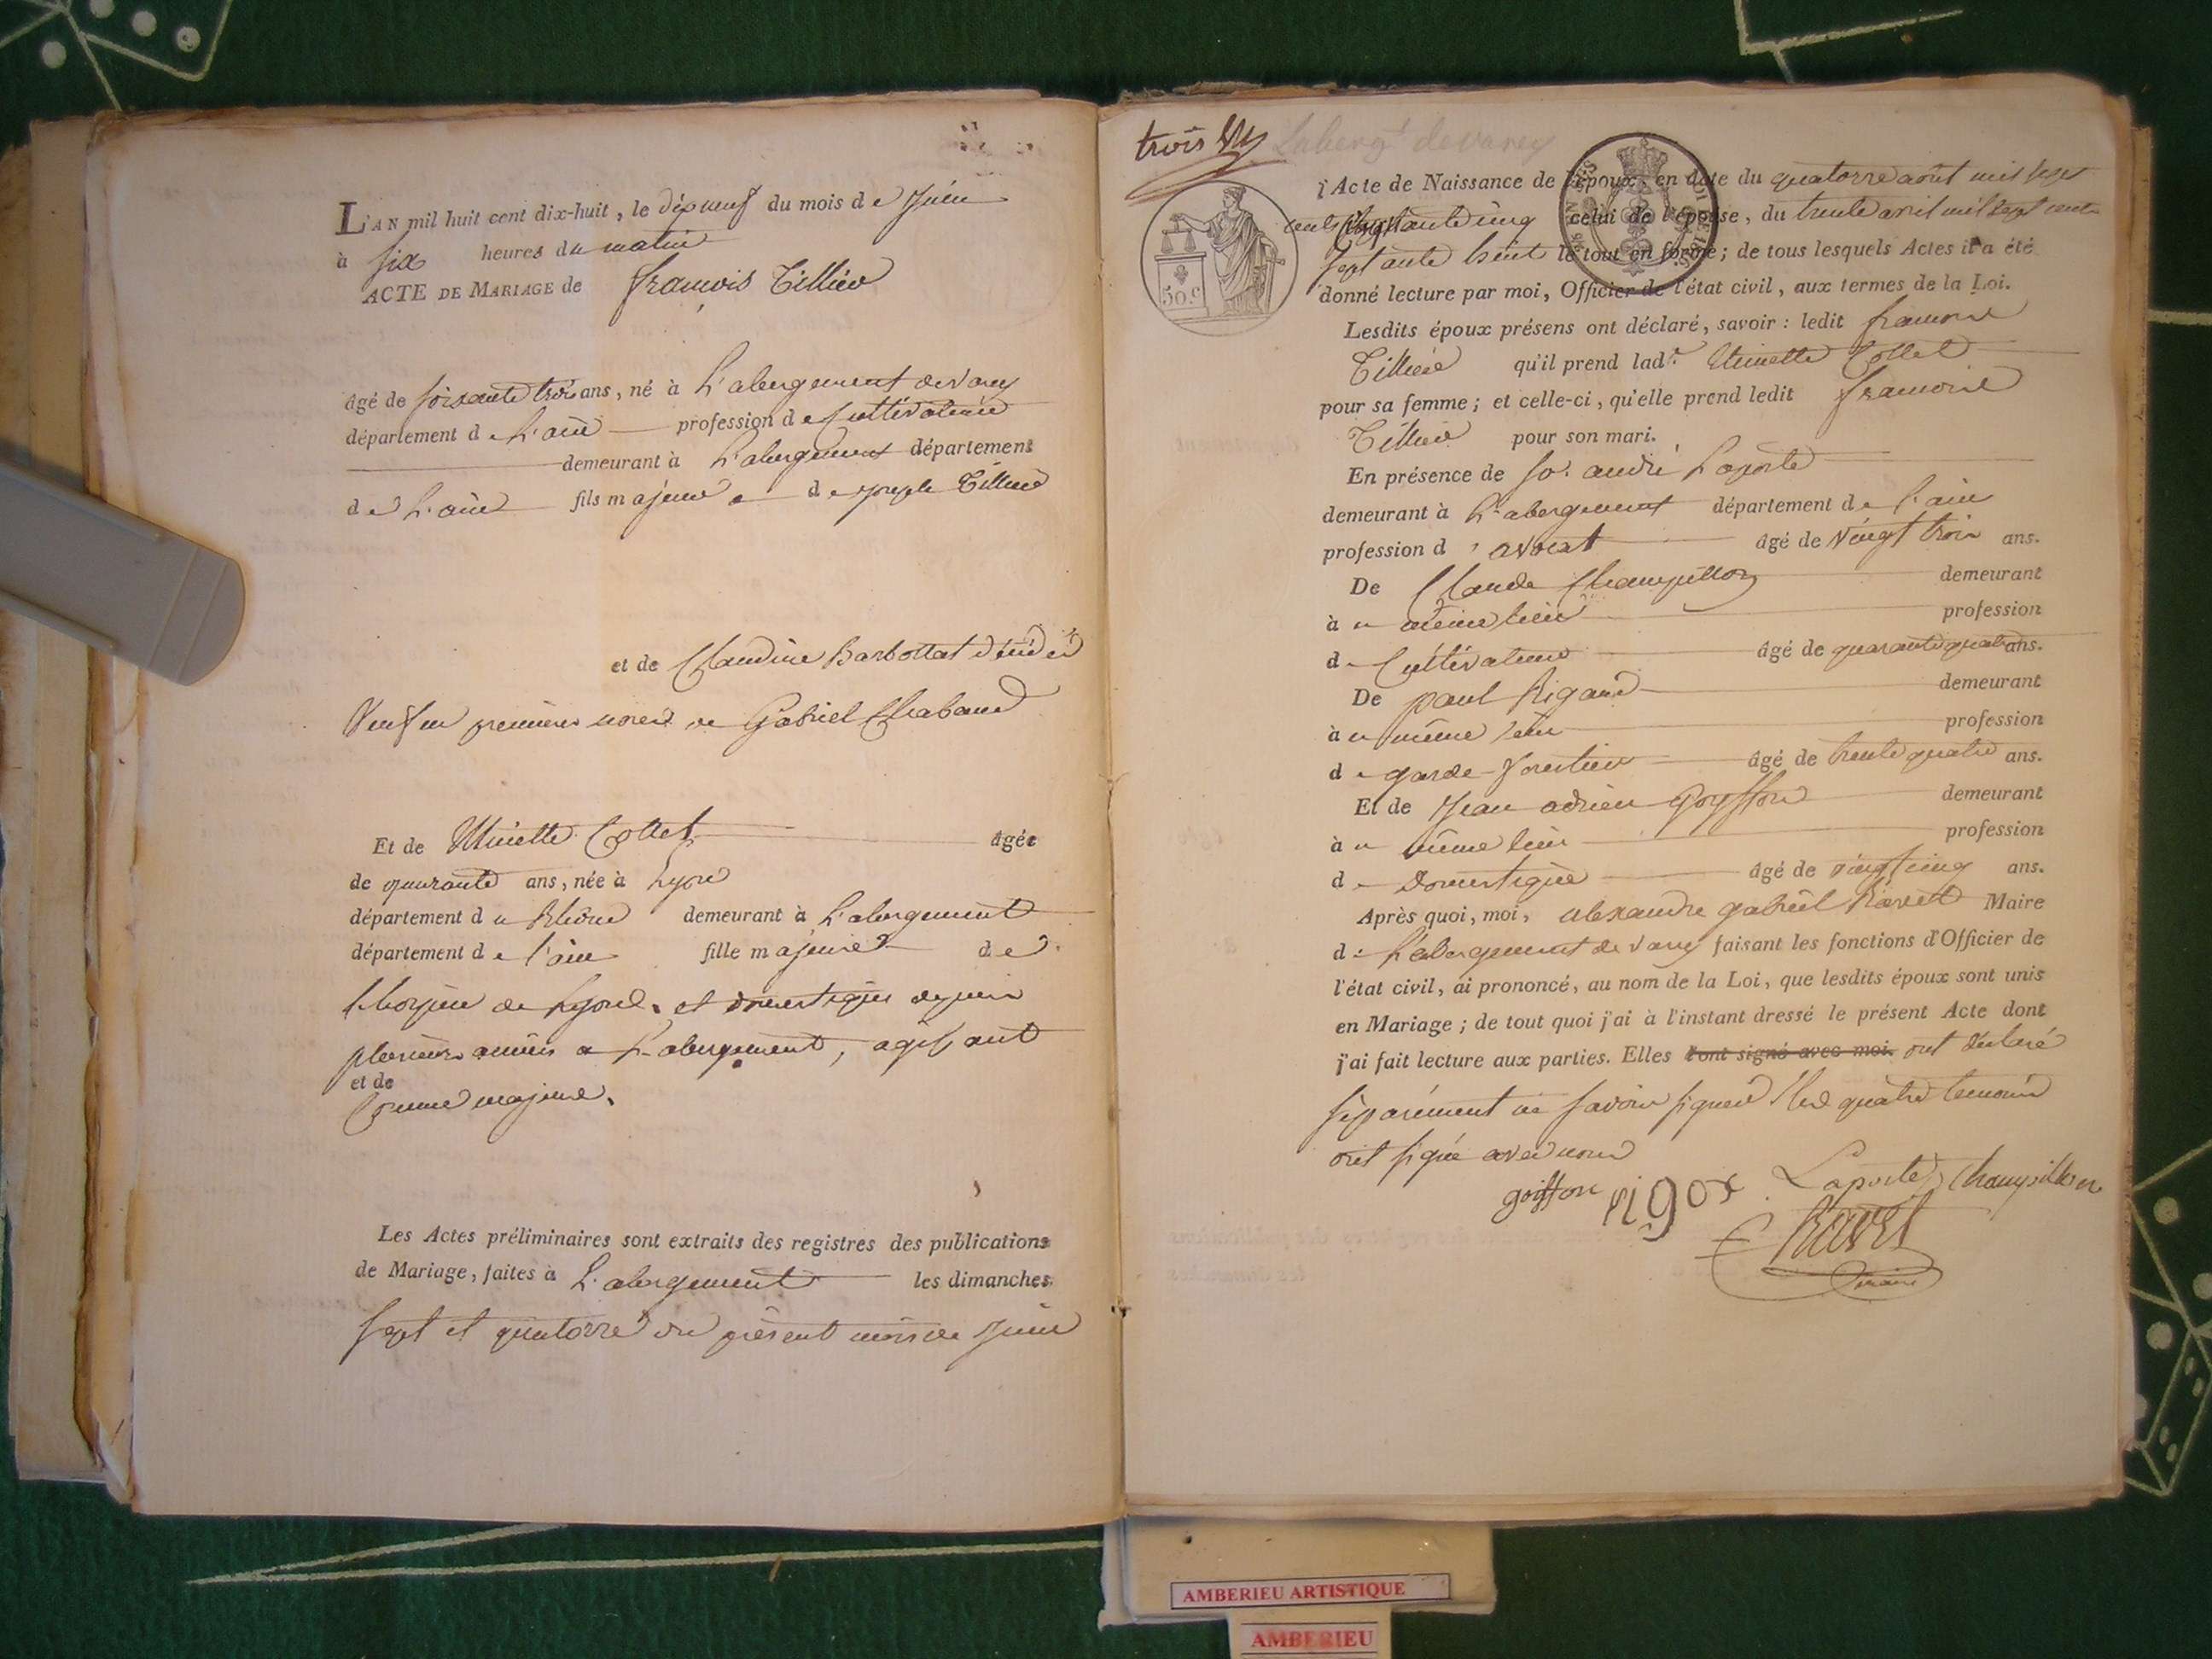 L'AN mil huit cent dix-huit, le dix neuf du mois de Juin
à six heures du matin
ACTE DE MARIAGE de françois Tillier
âgé de soixante trois ans, né à L'abergement de Varey
département de L'ain profession de Cultivateur
demeurant à L'abergement département
de L'ain fils majeur de joseph Tillier
et de Claudine Barbollat
Veuf en premieres noces de Gabriel Chabaud
Et de Etinette Collet âgée
de quarante ans, née à Lyon
département du Rhône demeurant à L'abergement
département de l'ain fille majeure de
de Lyon et domestique depuis
plusieurs années a L'abergement, agissant
et de
Comme majeure.
Les Actes préliminaires sont extraits des registres des publications
de Mariage, faites à L'abergement les dimanches
sept et quatorze du présent mois de Juin
trois
Laberg.t de varey
l'Acte de Naissance de l'époux, en date du quatorze août mil sept
cents cinq celui de l'épouse, du trente avril mil sept cents
septante huit le tout en forme; de tous lesquels Actes il a été
50.c
donné lecture par moi, Officier de l'état civil, aux termes de la Loi.
Lesdits époux présens ont déclaré, savoir: ledit françois
Tillier qu'il prend lad.e Etinette Collet
pour sa femme; et celle-ci, qu'elle prend ledit françois
Tillier pour son mari.
En présence de So. andré Laporte
demeurant à L'abergement département de l'ain
profession d'avocat âgé de Vingt trois ans.
De Claude Champillon demeurant
à u même lieu profession
de Cultivateur âgé de quarante quatre ans.
De paul Rigaud demeurant
à u même lieu profession
de garde-forestier âgé de trente quatre ans.
Et de Jean adrien Goyffon demeurant
à u même lieu profession
de Domestique âgé de vingt cinq ans.
Après quoi, moi, alexandre gabriel Ravet Maire
de L'abergement de varey faisant les fonctions d'Officier de
l'état civil, ai prononcé, au nom de la Loi, que lesdits époux sont unis
en Mariage; de tout quoi j'ai à l'instant dressé le présent Acte dont
j'ai fait lecture aux parties. Elles l'ont signé avec moi. ont déclaré
séparément ne savoir signer les quatre temoins
ont signé avec nous
goiffon rigos Laporte Champillon
Ravet
maire
AMBERIEU ARTISTIQUE
AMBERIEU